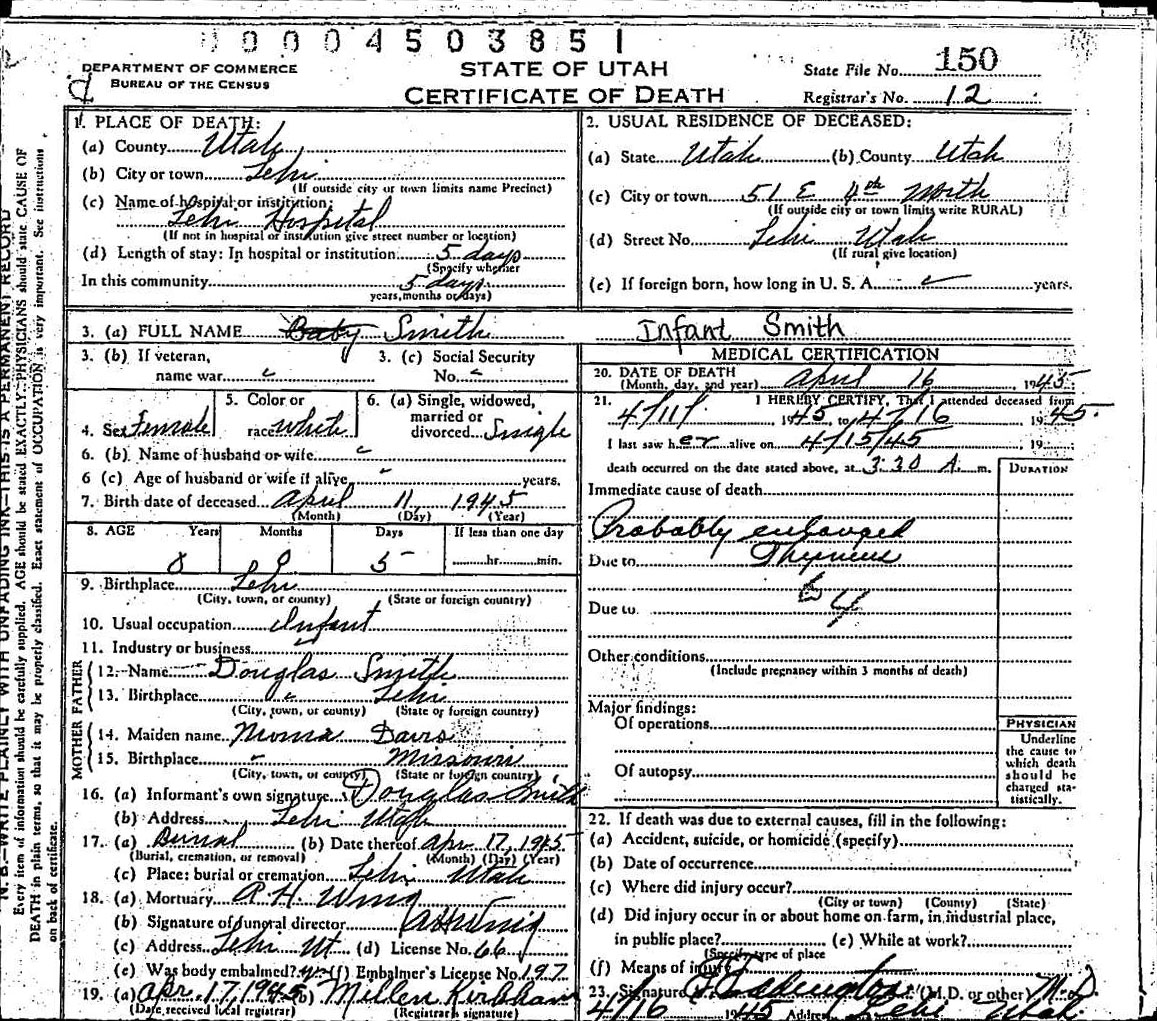 00004503851
DEPARTMENT OF COMMERCE
BUREAU OF THE CENSUS
STATE OF UTAH
CERTIFICATE OF DEATH
State File No. 150
Registrar's No. 12
N. B.—WRITE PLAINLY WITH UNFADING INK—THIS IS A PERMANENT RECORD
Every item of information should be carefully supplied. AGE should be stated EXACTLY. PHYSICIANS should state CAUSE OF
DEATH in plain terms, so that it may be properly classified. Exact statement of OCCUPATION is very important. See instructions
on back of certificate.
1. PLACE OF DEATH:
(a) County Utah
(b) City or town Lehi
(If outside city or town limits name Precinct)
(c) Name of hospital or institution:
Lehi Hospital
(If not in hospital or institution give street number or location)
(d) Length of stay: In hospital or institution 5 days
(Specify whether
In this community 5 days
years, months or days)
2. USUAL RESIDENCE OF DECEASED:
(a) State Utah (b) County Utah
(c) City or town 51 E 4th North
(If outside city or town limits write RURAL)
(d) Street No. Lehi Utah
(If rural give location)
(e) If foreign born, how long in U. S. A. years.
3. (a) FULL NAME Baby Smith Infant Smith
3. (b) If veteran, name war
3. (c) Social Security No.
4. Sex Female
5. Color or race white
6. (a) Single, widowed, married or divorced Single
6. (b) Name of husband or wife
6 (c) Age of husband or wife if alive years.
7. Birth date of deceased April 11, 1945
(Month) (Day) (Year)
8. AGE Years Months Days If less than one day
0 0 5 hr. min.
9. Birthplace Lehi
(City, town, or county) (State or foreign country)
10. Usual occupation Infant
11. Industry or business
FATHER
12. Name Douglas Smith
13. Birthplace Lehi
(City, town, or county) (State or foreign country)
MOTHER
14. Maiden name Davis
15. Birthplace Missouri
(City, town, or county) (State or foreign country)
16. (a) Informant's own signature Douglas Smith
(b) Address Lehi Utah
17. (a) Burial (b) Date thereof Apr. 17, 1945
(Burial, cremation, or removal) (Month) (Day) (Year)
(c) Place: burial or cremation Lehi Utah
18. (a) Mortuary A. H. Wing
(b) Signature of funeral director A H Wing
(c) Address Lehi Ut. (d) License No. 66
(e) Was body embalmed? yes (f) Embalmer's License No. 197
19. (a) Apr. 17, 1945 (b) Kirkham
(Date received local registrar) (Registrar's signature)
MEDICAL CERTIFICATION
20. DATE OF DEATH
(Month, day, and year) April 16, 1945
21. I HEREBY CERTIFY, That I attended deceased from
4/11/ 1945 to 4/16 1945
I last saw her alive on 4/15/45 19
death occurred on the date stated above, at 3:30 A. m.
DURATION
Immediate cause of death
Probably enlarged
Due to Thymus
64
Due to
Other conditions
(Include pregnancy within 3 months of death)
Major findings:
Of operations
Of autopsy
PHYSICIAN
Underline
the cause to
which death
should be
charged sta-
tistically.
22. If death was due to external causes, fill in the following:
(a) Accident, suicide, or homicide (specify)
(b) Date of occurrence
(c) Where did injury occur?
(City or town) (County) (State)
(d) Did injury occur in or about home on farm, in industrial place,
in public place? (e) While at work?
(Specify type of place
(f) Means of injury
23. Signature Eddington (M.D. or other) M.D.
4/16 1945 Address Lehi Utah